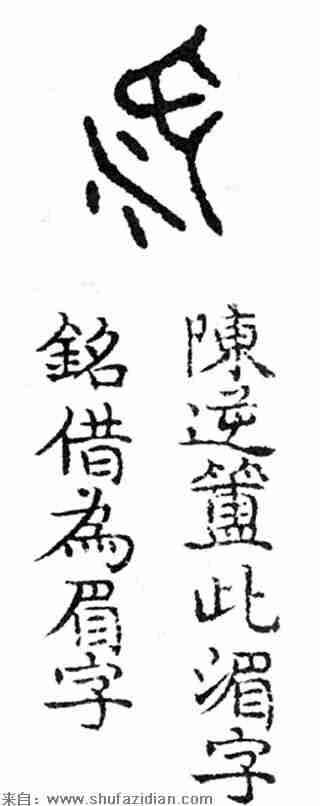 陳逆簠此湄字
銘借為眉字
来自：www.shufazidian.com